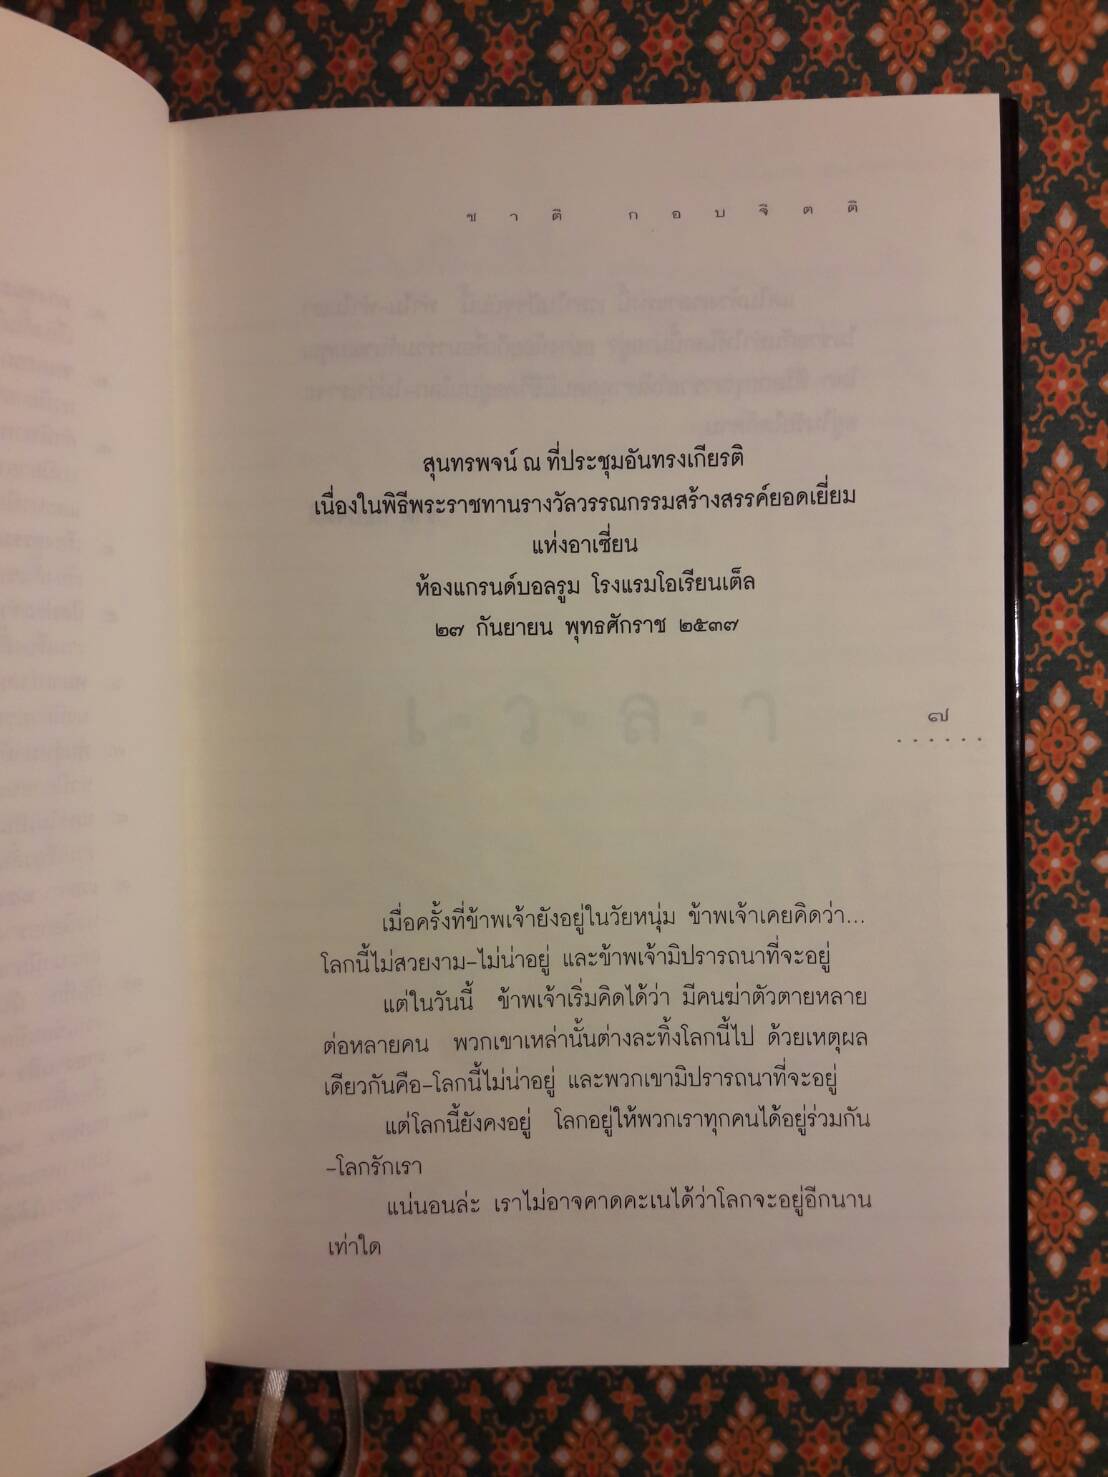 ชาติ กอบจิตติ
สุนทรพจน์ ณ ที่ประชุมอันทรงเกียรติ
เนื่องในพิธีพระราชทานรางวัลวรรณกรรมสร้างสรรค์ยอดเยี่ยม
แห่งอาเซี่ยน
ห้องแกรนด์บอลรูม โรงแรมโอเรียนเต็ล
๒๗ กันยายน พุทธศักราช ๒๕๓๗
เ·ว·ล·า
๗
เมื่อครั้งที่ข้าพเจ้ายังอยู่ในวัยหนุ่ม ข้าพเจ้าเคยคิดว่า...
โลกนี้ไม่สวยงาม–ไม่น่าอยู่ และข้าพเจ้ามิปรารถนาที่จะอยู่
แต่ในวันนี้ ข้าพเจ้าเริ่มคิดได้ว่า มีคนฆ่าตัวตายหลาย
ต่อหลายคน พวกเขาเหล่านั้นต่างละทิ้งโลกนี้ไป ด้วยเหตุผล
เดียวกันคือ–โลกนี้ไม่น่าอยู่ และพวกเขามิปรารถนาที่จะอยู่
แต่โลกนี้ยังคงอยู่ โลกอยู่ให้พวกเราทุกคนได้อยู่ร่วมกัน
–โลกรักเรา
แน่นอนล่ะ เราไม่อาจคาดคะเนได้ว่าโลกจะอยู่อีกนาน
เท่าใด